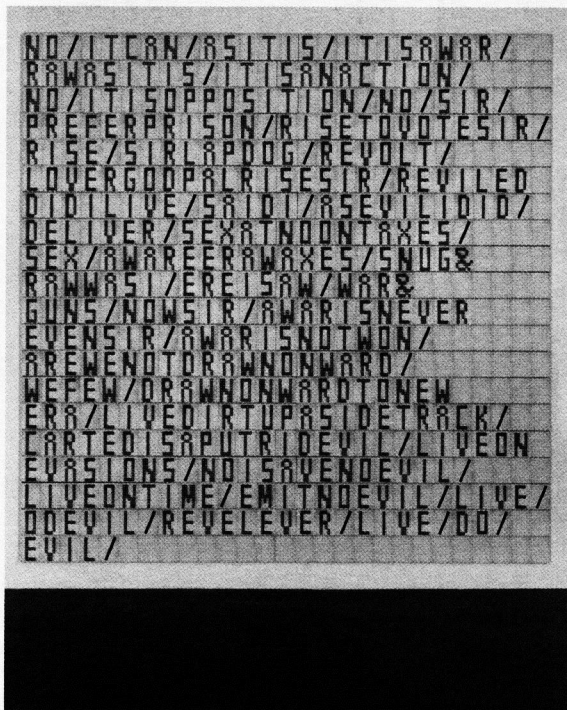 NO/ITCAN/ASITIS/ITISAWAR/
RAWASITIS/ITISANACTION/
NO/ITISOPPOSITION/NO/SIR/
PREFERPRISON/RISETOVOTESIR/
RISE/SIRLAPDOG/REVOLT/
LOVERGODPALRISESIR/REVILED
DIDILIVE/SAIDI/ASEVILIDID/
DELIVER/SEXATNOONTAXES/
SEX/AWAREERAWAXES/SNUG&
RAWWASI/EREISAW/WAR&
GUNS/NOWSIR/AWARISNEVER
EVENSIR/AWARISNOTWON/
AREWENOTDRAWNONWARD/
WEFEW/DRAWNONWARDTONEW
ERA/LIVEDIRTUPASIDETRACK/
CARTEDISAPUTRIDEVIL/LIVEON
EVASIONS/NOISAVENDEVIL/
LIVEONTIME/EMITNOEVIL/LIVE/
ODEVIL/REVELEVER/LIVE/DO/
EVIL/